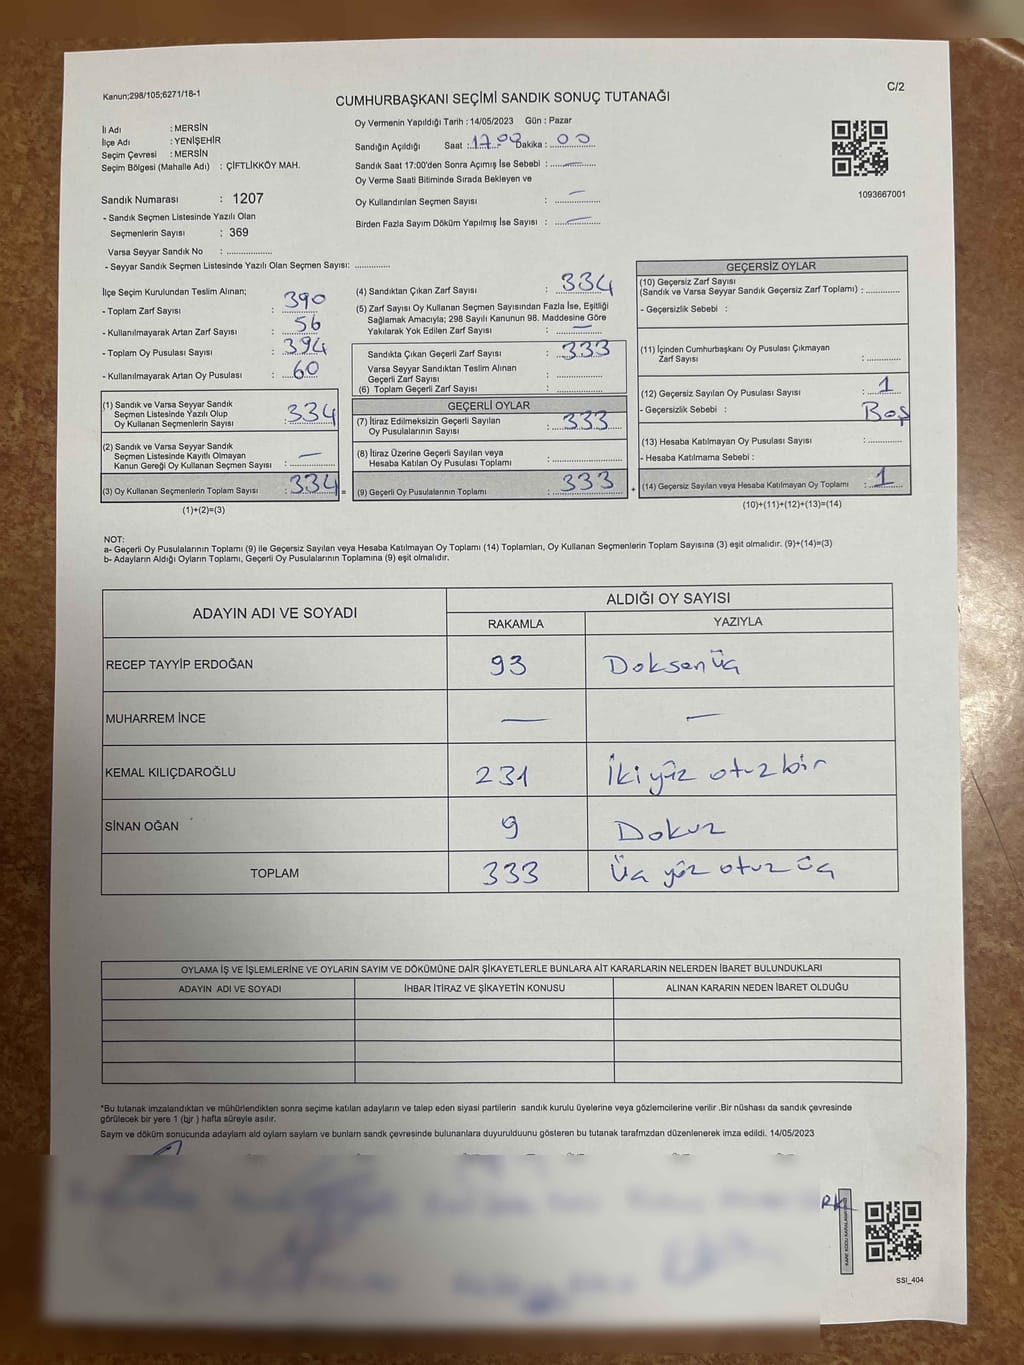 Kanun;298/105;6271/18-1
C/2
CUMHURBAŞKANI SEÇİMİ SANDIK SONUÇ TUTANAĞI
İl Adı : MERSİN
İlçe Adı : YENİŞEHİR
Seçim Çevresi : MERSİN
Seçim Bölgesi (Mahalle Adı) : ÇİFTLİKKÖY MAH.
Sandık Numarası : 1207
- Sandık Seçmen Listesinde Yazılı Olan
Seçmenlerin Sayısı : 369
Varsa Seyyar Sandık No : ..................
- Seyyar Sandık Seçmen Listesinde Yazılı Olan Seçmen Sayısı: ..............
Oy Vermenin Yapıldığı Tarih : 14/05/2023 Gün : Pazar
Sandığın Açıldığı Saat : 17.00 Dakika : 00
Sandık Saat 17:00'den Sonra Açımış İse Sebebi : —
Oy Verme Saati Bitiminde Sırada Bekleyen ve
Oy Kullandırılan Seçmen Sayısı : —
Birden Fazla Sayım Döküm Yapılmış İse Sayısı : —
1093667001
İlçe Seçim Kurulundan Teslim Alınan;
- Toplam Zarf Sayısı : 390
- Kullanılmayarak Artan Zarf Sayısı : 56
- Toplam Oy Pusulası Sayısı : 394
- Kullanılmayarak Artan Oy Pusulası : 60
(1) Sandık ve Varsa Seyyar Sandık
Seçmen Listesinde Yazılı Olup
Oy Kullanan Seçmenlerin Sayısı : 334
(2) Sandık ve Varsa Seyyar Sandık
Seçmen Listesinde Kayıtlı Olmayan
Kanun Gereği Oy Kullanan Seçmen Sayısı : —
(3) Oy Kullanan Seçmenlerin Toplam Sayısı : 334 =
(1)+(2)=(3)
(4) Sandıktan Çıkan Zarf Sayısı : 334
(5) Zarf Sayısı Oy Kullanan Seçmen Sayısından Fazla İse, Eşitliği
Sağlamak Amacıyla; 298 Sayılı Kanunun 98. Maddesine Göre
Yakılarak Yok Edilen Zarf Sayısı : —
Sandıkta Çıkan Geçerli Zarf Sayısı : 333
Varsa Seyyar Sandıktan Teslim Alınan
Geçerli Zarf Sayısı : ..............
(6) Toplam Geçerli Zarf Sayısı : ..............
GEÇERLİ OYLAR
(7) İtiraz Edilmeksizin Geçerli Sayılan
Oy Pusulalarının Sayısı : 333
(8) İtiraz Üzerine Geçerli Sayılan veya
Hesaba Katılan Oy Pusulası Toplamı : ..............
(9) Geçerli Oy Pusulalarının Toplamı : 333 +
GEÇERSİZ OYLAR
(10) Geçersiz Zarf Sayısı
(Sandık ve Varsa Seyyar Sandık Geçersiz Zarf Toplamı) : ............
- Geçersizlik Sebebi :
(11) İçinden Cumhurbaşkanı Oy Pusulası Çıkmayan
Zarf Sayısı : ............
(12) Geçersiz Sayılan Oy Pusulası Sayısı : 1
- Geçersizlik Sebebi : Boş
(13) Hesaba Katılmayan Oy Pusulası Sayısı : ............
- Hesaba Katılmama Sebebi :
(14) Geçersiz Sayılan veya Hesaba Katılmayan Oy Toplamı : 1
(10)+(11)+(12)+(13)=(14)
NOT:
a- Geçerli Oy Pusulalarının Toplamı (9) ile Geçersiz Sayılan veya Hesaba Katılmayan Oy Toplamı (14) Toplamları, Oy Kullanan Seçmenlerin Toplam Sayısına (3) eşit olmalıdır. (9)+(14)=(3)
b- Adayların Aldığı Oyların Toplamı, Geçerli Oy Pusulalarının Toplamına (9) eşit olmalıdır.
ADAYIN ADI VE SOYADI ALDIĞI OY SAYISI
RAKAMLA YAZIYLA
RECEP TAYYİP ERDOĞAN 93 Doksan üç
MUHARREM İNCE — —
KEMAL KILIÇDAROĞLU 231 İki yüz otuz bir
SİNAN OĞAN 9 Dokuz
TOPLAM 333 Üç yüz otuz üç
OYLAMA İŞ VE İŞLEMLERİNE VE OYLARIN SAYIM VE DÖKÜMÜNE DAİR ŞİKAYETLERLE BUNLARA AİT KARARLARIN NELERDEN İBARET BULUNDUKLARI
ADAYIN ADI VE SOYADI İHBAR İTİRAZ VE ŞİKAYETİN KONUSU ALINAN KARARIN NEDEN İBARET OLDUĞU
*Bu tutanak imzalandıktan ve mühürlendikten sonra seçime katılan adayların ve talep eden siyasi partilerin sandık kurulu üyelerine veya gözlemcilerine verilir .Bir nüshası da sandık çevresinde
görülecek bir yere 1 (bjr ) hafta süreyle asılır.
Sayım ve döküm sonucunda adaylam ald oylam saylam ve bunlam sandk çevresinde bulunanlara duyurulduunu gösteren bu tutanak tarafmzdan düzenlenerek imza edildi. 14/05/2023
RK
SSI_404